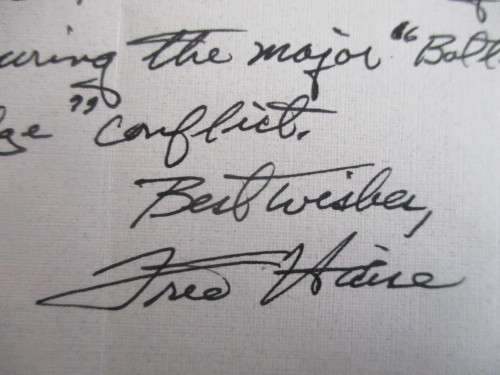 uring the major "Batt
ge" conflict.
Best wishes,
Fred Haise